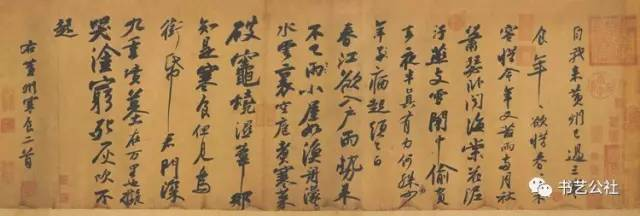 自我來黃州已過三寒
食年年欲惜春春去不
容惜今年又苦雨兩月秋
蕭瑟臥聞海棠花泥
汙燕支雪闇中偷負
去夜半真有力何殊病少
年子病起頭已白
春江欲入戶雨勢來
不已雨小屋如漁舟濛濛
水雲裏空庖煮寒菜
破竈燒濕葦那
知是寒食但見烏
銜帋君門深
九重墳墓在万里也擬
哭塗窮死灰吹不
起
右黃州寒食二首
书艺公社